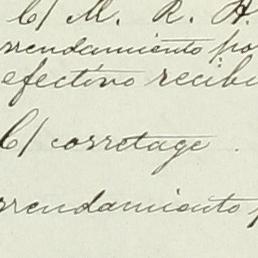 C/ M. R. H.
rrendamiento po
efectivo recibi
C/ corretage.
rrendamiento p